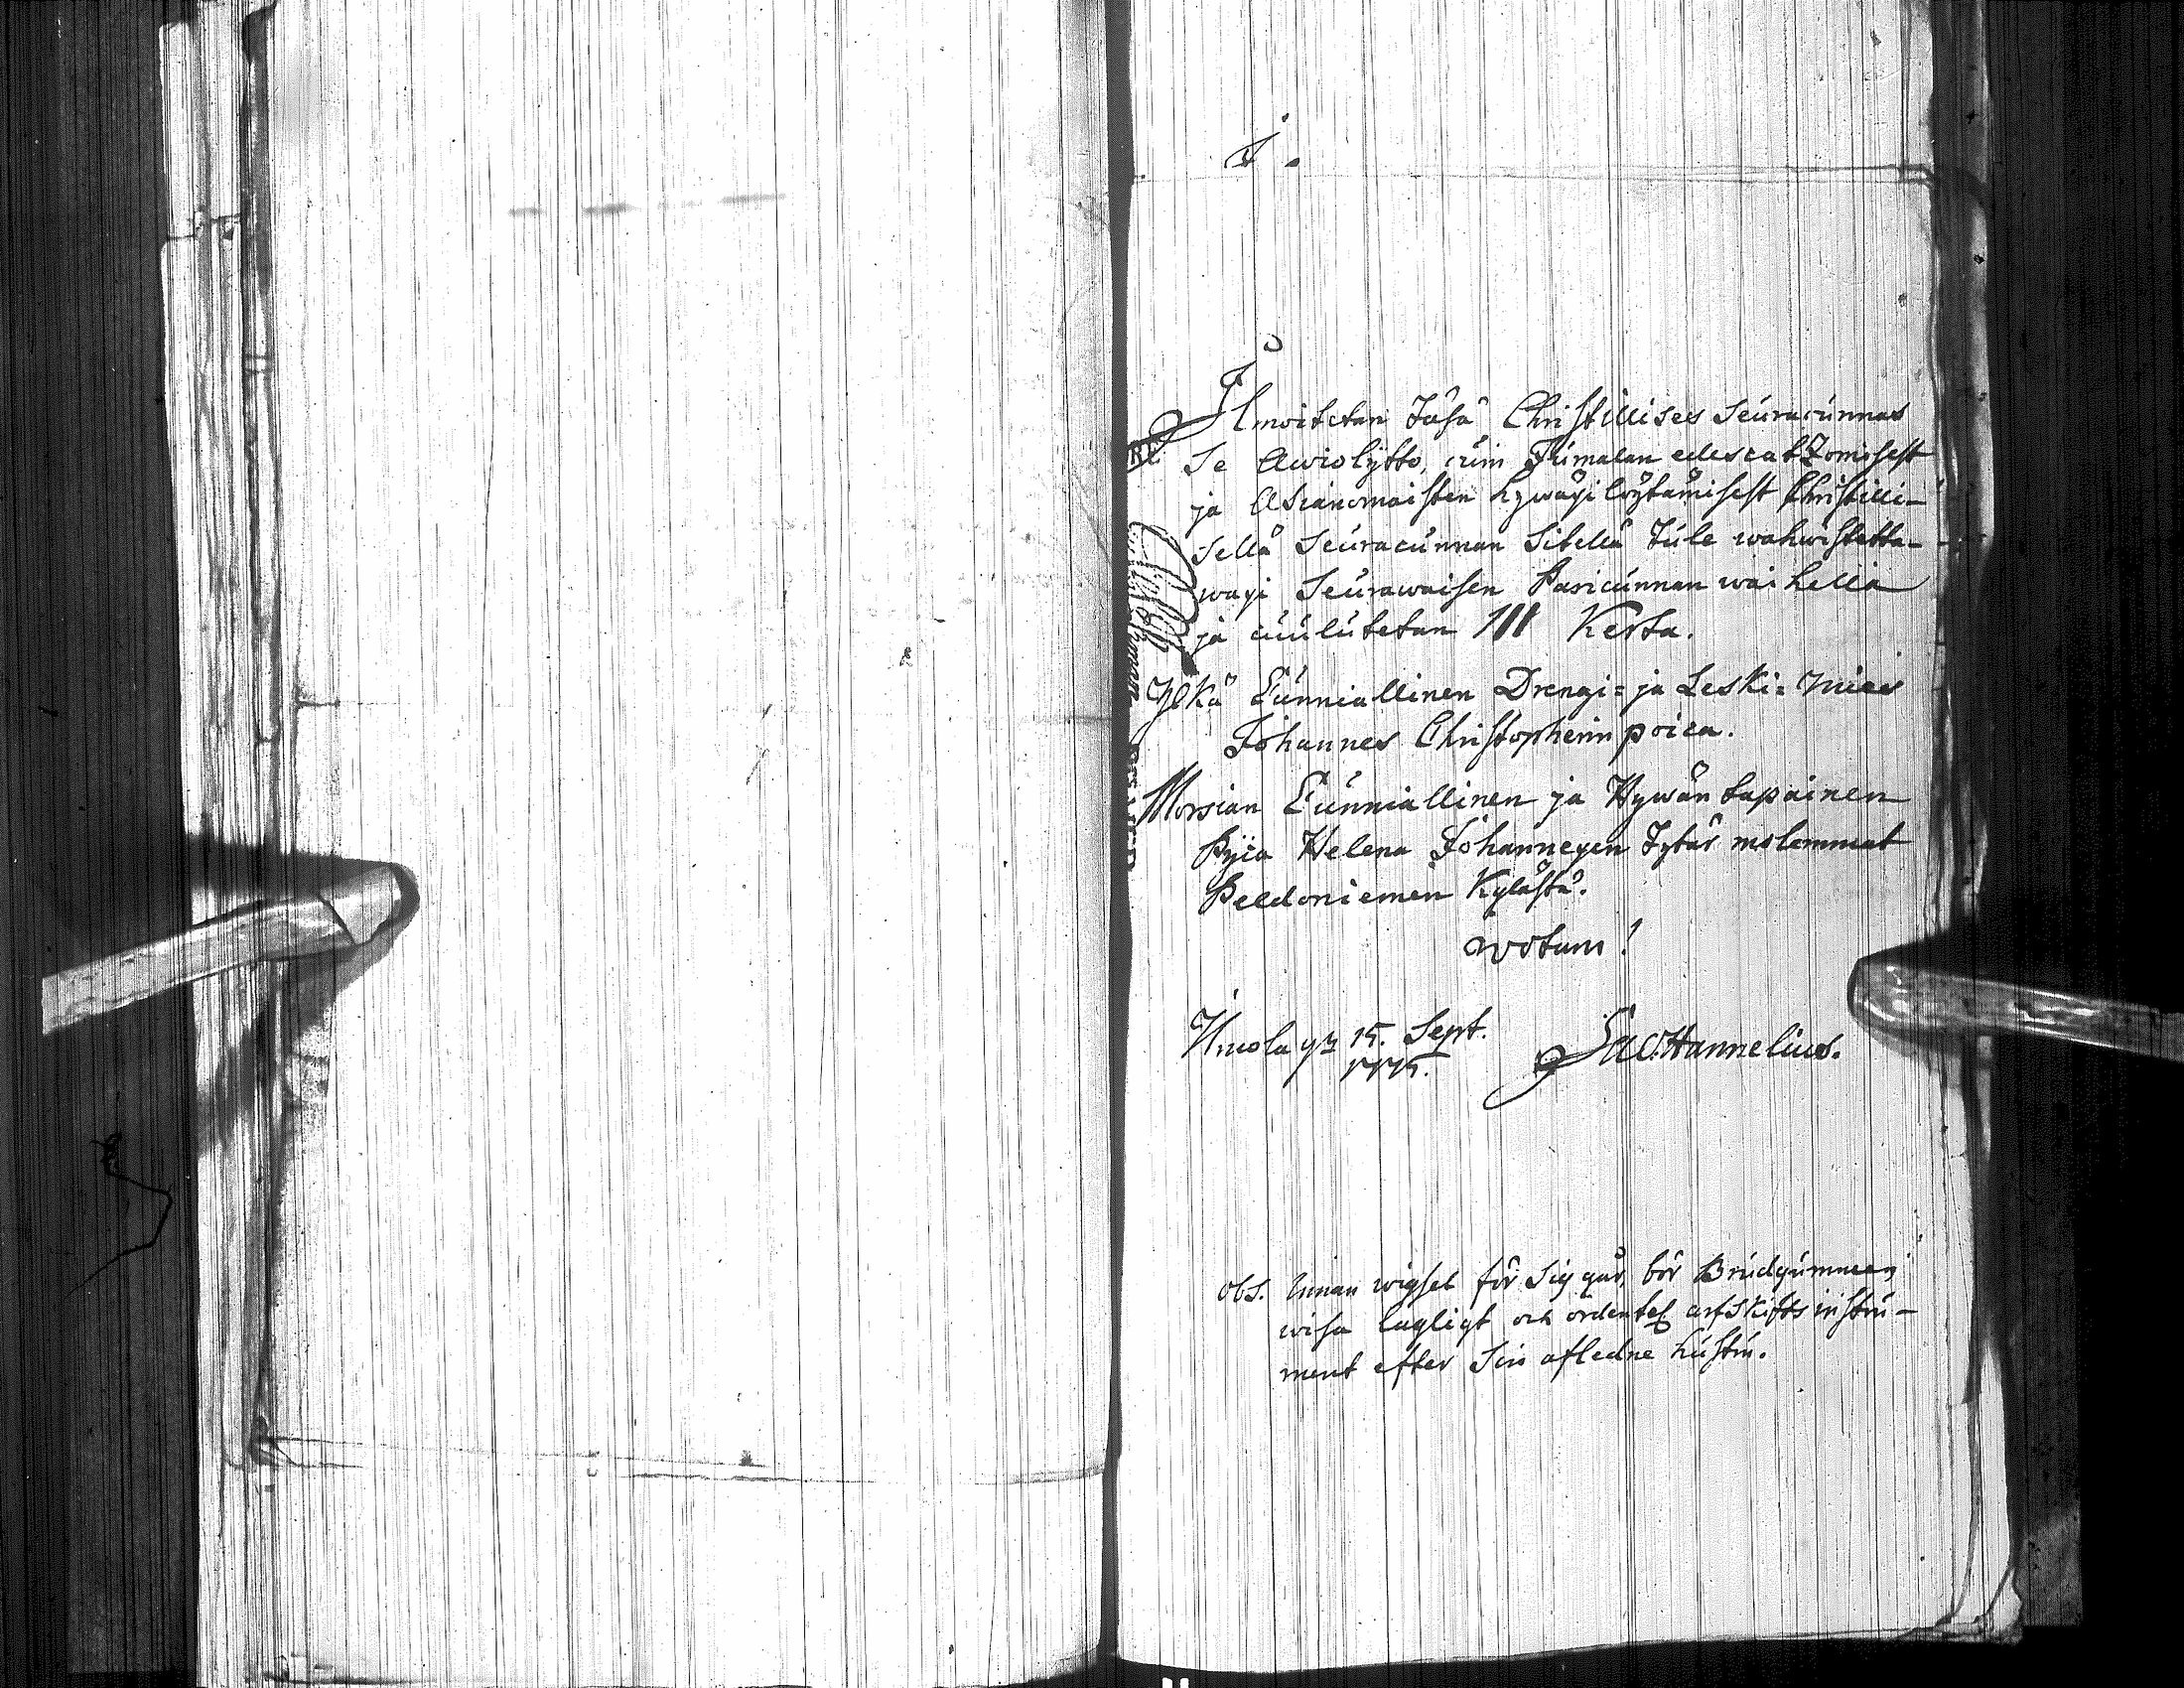 J.
Ilmoitetan Täsä Christillises Seuracunnas
Se Awiolijtto, cuin Jumalan edescatzomisest
ja Asianomaisten hywäxi löytämisest Christilli-
sellä Seuracunnan Sitellä Tule wahwistetta-
waxi Seurawaisen Paricunnan waihella
ja cuulutetan III Kerta.
Ylkä Cunniallinen Drengi= ja Leski= mies
Johannes Christopherin poica.
Morsian Cunniallinen ja Hywän tapainen
Pijca Helena Johannexen Tytär molemmat
Peldoniemen Kylästä.
wotum!
15. Sept.
1775.
Hannelius.
obs. Innan wigsel för Sig går, bör Brudgummen
wisa lagligt och ordentel arfskifts instru-
ment efter Sin afledne hustru.